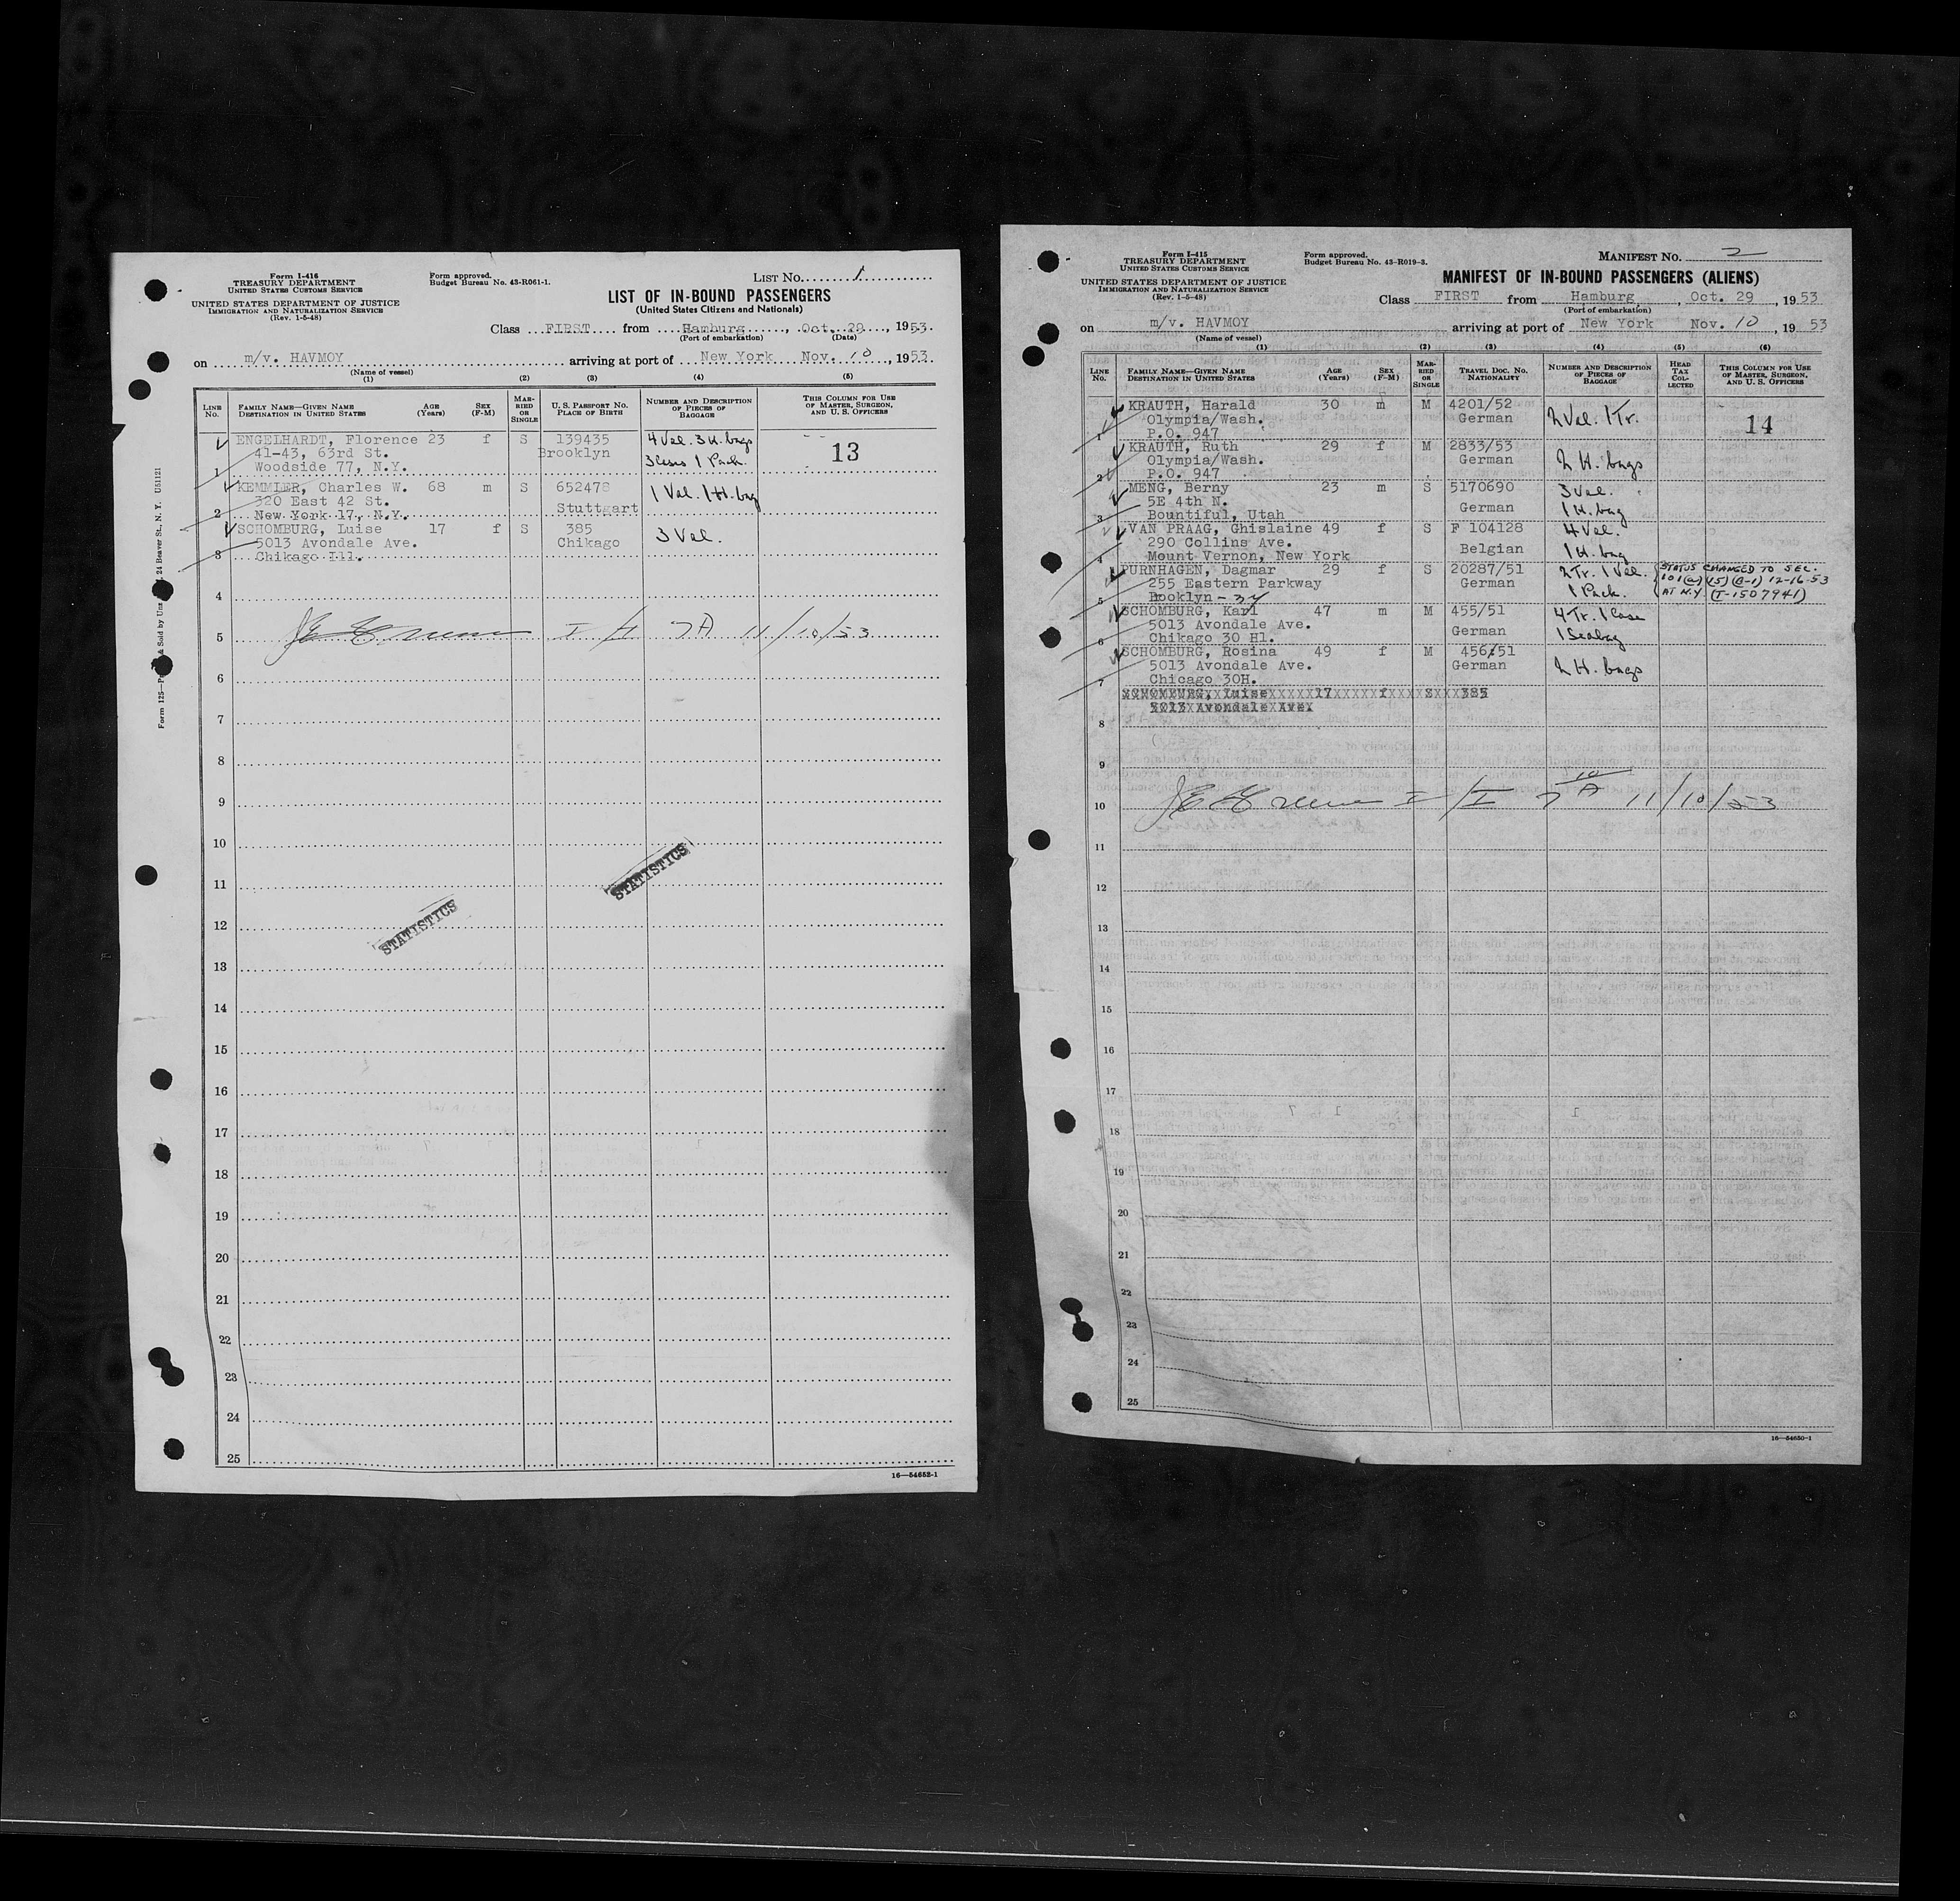 Form I-416
TREASURY DEPARTMENT
UNITED STATES CUSTOMS SERVICE
UNITED STATES DEPARTMENT OF JUSTICE
IMMIGRATION AND NATURALIZATION SERVICE
(Rev. 1-5-48)
Form approved.
Budget Bureau No. 43-R061-1.
LIST No. 1
LIST OF IN-BOUND PASSENGERS
(United States Citizens and Nationals)
Class FIRST from Hamburg, Oct. 29, 1953.
(Port of embarkation) (Date)
on m/v. HAVMOY arriving at port of New York Nov. 10, 1953.
(Name of vessel)
(1) (2) (3) (4) (5)
LINE No. FAMILY NAME—GIVEN NAME DESTINATION IN UNITED STATES AGE (Years) SEX (F-M) MARRIED OR SINGLE U. S. PASSPORT NO. PLACE OF BIRTH NUMBER AND DESCRIPTION OF PIECES OF BAGGAGE THIS COLUMN FOR USE OF MASTER, SURGEON, AND U. S. OFFICERS
ENGELHARDT, Florence 23 f S 139435 4 Val. 3 H. bags 13
41-43, 63rd St. Brooklyn
1 Woodside 77, N.Y. 1 Pack.
KEMMLER, Charles W. 68 m S 652478 1 Val. 1 H. bag
320 East 42 St. Stuttgart
2 New York 17, N.Y.
SCHOMBURG, Luise 17 f S 385 3 Val.
5013 Avondale Ave. Chikago
3 Chikago Ill.
4
5 11/10/53
6
7
8
9
10
STATISTICS
11
STATISTICS
12
13
14
15
16
17
18
19
20
21
22
23
24
25
16—54652-1
24 Beaver St., N. Y. U51121
Form I-415
TREASURY DEPARTMENT
UNITED STATES CUSTOMS SERVICE
UNITED STATES DEPARTMENT OF JUSTICE
IMMIGRATION AND NATURALIZATION SERVICE
(Rev. 1-5-48)
Form approved.
Budget Bureau No. 43-R019-3.
MANIFEST No. 2
MANIFEST OF IN-BOUND PASSENGERS (ALIENS)
Class FIRST from Hamburg, Oct. 29, 1953
(Port of embarkation)
on m/v. HAVMOY arriving at port of New York Nov. 10, 1953
(Name of vessel)
(1) (2) (3) (4) (5) (6)
LINE No. FAMILY NAME—GIVEN NAME DESTINATION IN UNITED STATES AGE (Years) SEX (F-M) MARRIED OR SINGLE TRAVEL DOC. NO. NATIONALITY NUMBER AND DESCRIPTION OF PIECES OF BAGGAGE HEAD TAX COLLECTED THIS COLUMN FOR USE OF MASTER, SURGEON, AND U. S. OFFICERS
KRAUTH, Harald 30 m M 4201/52 2 Val. 1 Tr. 14
Olympia/Wash. German
1 P.O. 947
KRAUTH, Ruth 29 f M 2833/53 2 H. bags
Olympia/Wash. German
2 P.O. 947
MENG, Berny 23 m S 5170690 3 Val.
5E 4th N. German 1 H. bag
3 Bountiful, Utah
VAN PRAAG, Ghislaine 49 f S F 104128 4 Val.
290 Collins Ave. Belgian 1 H. bag
4 Mount Vernon, New York
PURNHAGEN, Dagmar 29 f S 20287/51 2 Tr. 1 Val. STATUS CHANGED TO SEC.
255 Eastern Parkway German 1 Pack. 101(a)(15)(A-1) 12-16-53
5 Booklyn - 34 AT N.Y (T-1507941)
SCHOMBURG, Karl 47 m M 455/51 4 Tr. 1 Case
5013 Avondale Ave. German 1 Seabag
6 Chikago 30 Hl.
SCHOMBURG, Rosina 49 f M 456/51 2 H. bags
5013 Avondale Ave. German
7 Chicago 30H.
SCHOMBURG, Luise 17 f S 385
5013 Avondale Ave.
8
9
10 11/10/53
11
12
13
14
15
16
17
18
19
20
21
22
23
24
25
16—54650-1